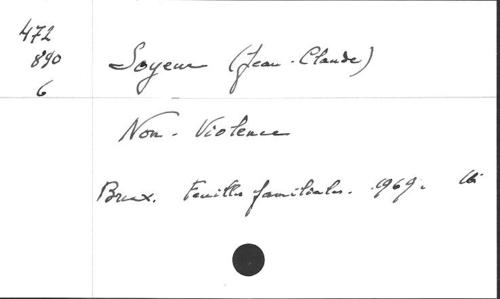 472
890
6
Soyeur (Jean-Claude)
Non-Violence
Brux. Feuilles familiales. 1969.